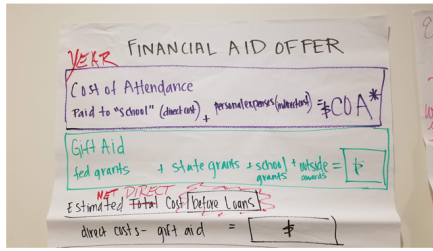 YEAR FINANCIAL AID OFFER
Cost of Attendance
Paid to "school" (direct cost) + personal expenses (indirect cost) = $COA*
Gift Aid
fed grants + state grants + school grants + outside awards = $
Estimated NET DIRECT Total Cost before Loans
direct costs - gift aid = $